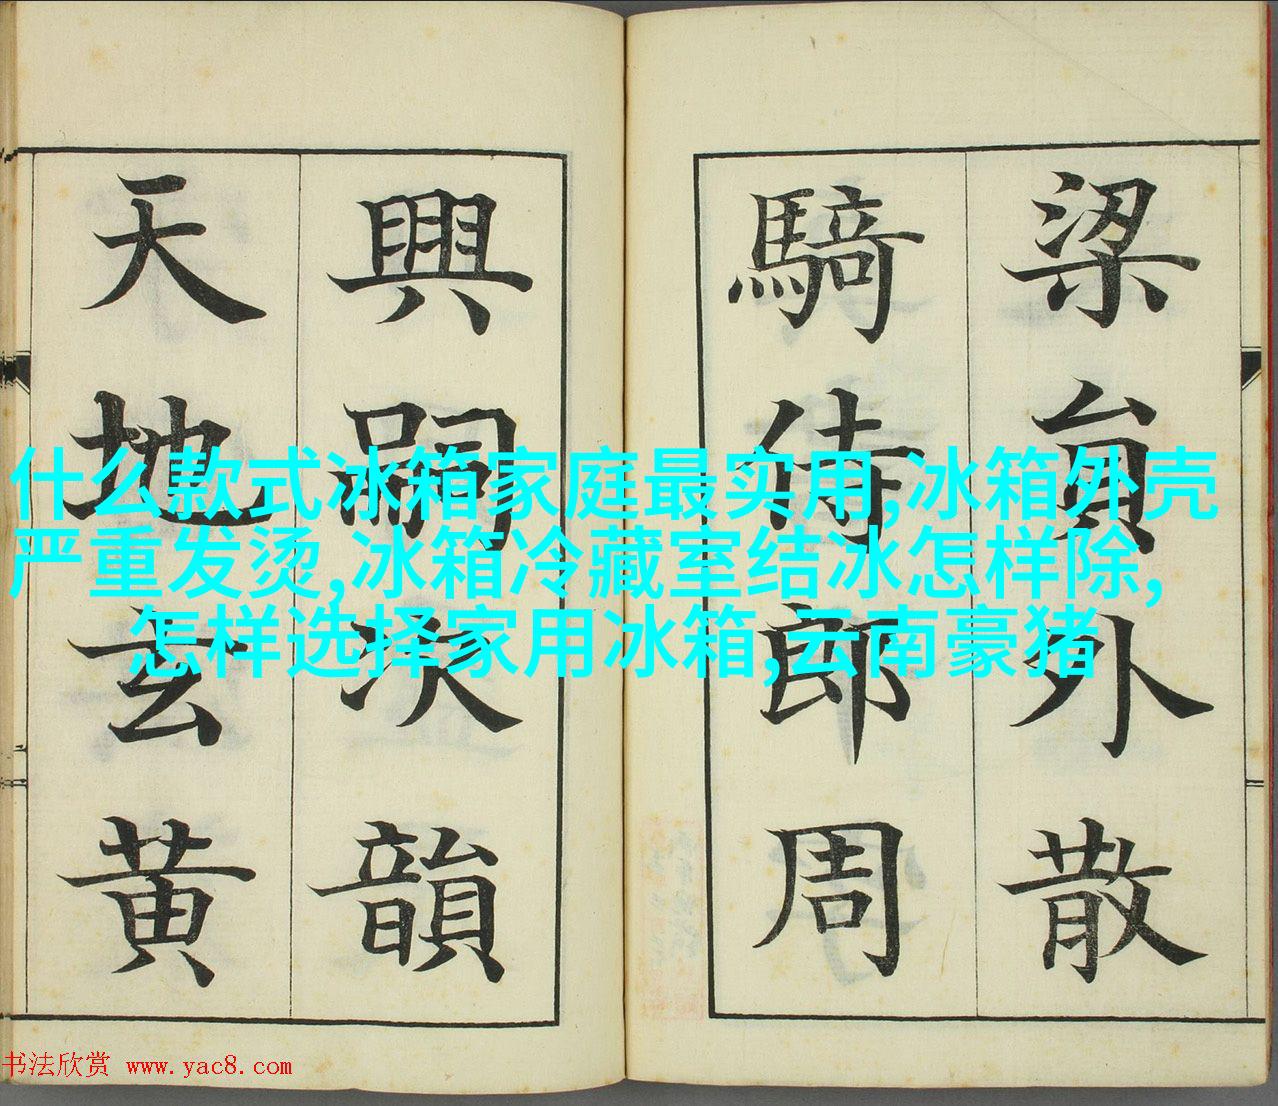 梁員外散
騎侍郎周
興嗣次韻
天地玄黃
什么款式冰箱家庭最实用,冰箱外壳
严重发烫,冰箱冷藏室结冰怎样除,
怎样选择家用冰箱,云南豪猪
书法欣赏 www.yac8.com